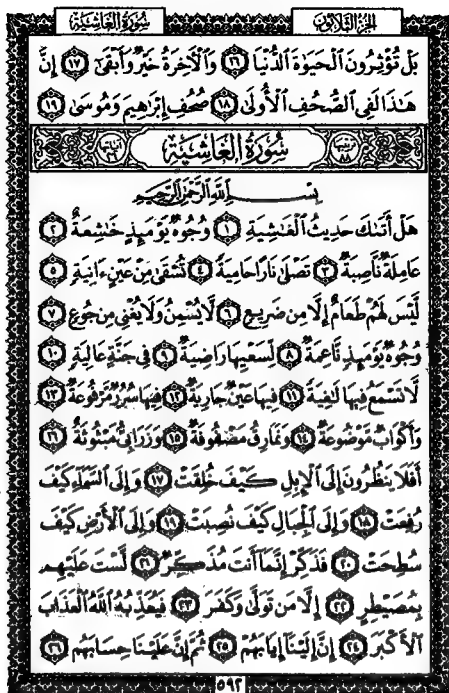 سُورَةُ الغَاشِيَةِ الجُزْءُ الثَّلَاثُونَ
بَلْ تُؤْثِرُونَ ٱلْحَيَوٰةَ ٱلدُّنْيَا ١٦ وَٱلْأَخِرَةُ خَيْرٌ وَأَبْقَىٰ ١٧ إِنَّ
هَٰذَا لَفِى ٱلصُّحُفِ ٱلْأُولَىٰ ١٨ صُحُفِ إِبْرَٰهِيمَ وَمُوسَىٰ ١٩
سُورَةُ الغَاشِيَةِ
بِسْمِ ٱللَّهِ ٱلرَّحْمَٰنِ ٱلرَّحِيمِ
هَلْ أَتَىٰكَ حَدِيثُ ٱلْغَٰشِيَةِ ١ وُجُوهٌ يَوْمَئِذٍ خَٰشِعَةٌ ٢
عَامِلَةٌ نَّاصِبَةٌ ٣ تَصْلَىٰ نَارًا حَامِيَةً ٤ تُسْقَىٰ مِنْ عَيْنٍ ءَانِيَةٍ ٥
لَّيْسَ لَهُمْ طَعَامٌ إِلَّا مِن ضَرِيعٍ ٦ لَّا يُسْمِنُ وَلَا يُغْنِى مِن جُوعٍ ٧
وُجُوهٌ يَوْمَئِذٍ نَّاعِمَةٌ ٨ لِّسَعْيِهَا رَاضِيَةٌ ٩ فِى جَنَّةٍ عَالِيَةٍ ١٠
لَّا تَسْمَعُ فِيهَا لَٰغِيَةً ١١ فِيهَا عَيْنٌ جَارِيَةٌ ١٢ فِيهَا سُرُرٌ مَّرْفُوعَةٌ ١٣
وَأَكْوَابٌ مَّوْضُوعَةٌ ١٤ وَنَمَارِقُ مَصْفُوفَةٌ ١٥ وَزَرَابِىُّ مَبْثُوثَةٌ ١٦
أَفَلَا يَنظُرُونَ إِلَى ٱلْإِبِلِ كَيْفَ خُلِقَتْ ١٧ وَإِلَى ٱلسَّمَآءِ كَيْفَ
رُفِعَتْ ١٨ وَإِلَى ٱلْجِبَالِ كَيْفَ نُصِبَتْ ١٩ وَإِلَى ٱلْأَرْضِ كَيْفَ
سُطِحَتْ ٢٠ فَذَكِّرْ إِنَّمَآ أَنتَ مُذَكِّرٌ ٢١ لَّسْتَ عَلَيْهِم
بِمُصَيْطِرٍ ٢٢ إِلَّا مَن تَوَلَّىٰ وَكَفَرَ ٢٣ فَيُعَذِّبُهُ ٱللَّهُ ٱلْعَذَابَ
ٱلْأَكْبَرَ ٢٤ إِنَّ إِلَيْنَآ إِيَابَهُمْ ٢٥ ثُمَّ إِنَّ عَلَيْنَا حِسَابَهُم ٢٦
٥٩٢